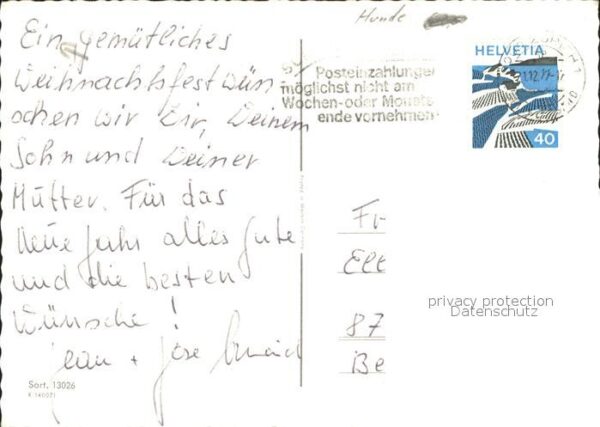 Hunde
Ein gemütliches
Weihnachtsfest wün-
schen wir Dir, Deinem
Sohn und Deiner
Mutter. Für das
Neue Jahr alles Gute
und die besten
Wünsche!
Jean +
Sort. 13026
K 140071
Posteinzahlungen
möglichst nicht am
Wochen- oder Monats-
ende vornehmen
HELVETIA
40
Fr
Elt
87
Be
privacy protection
Datenschutz